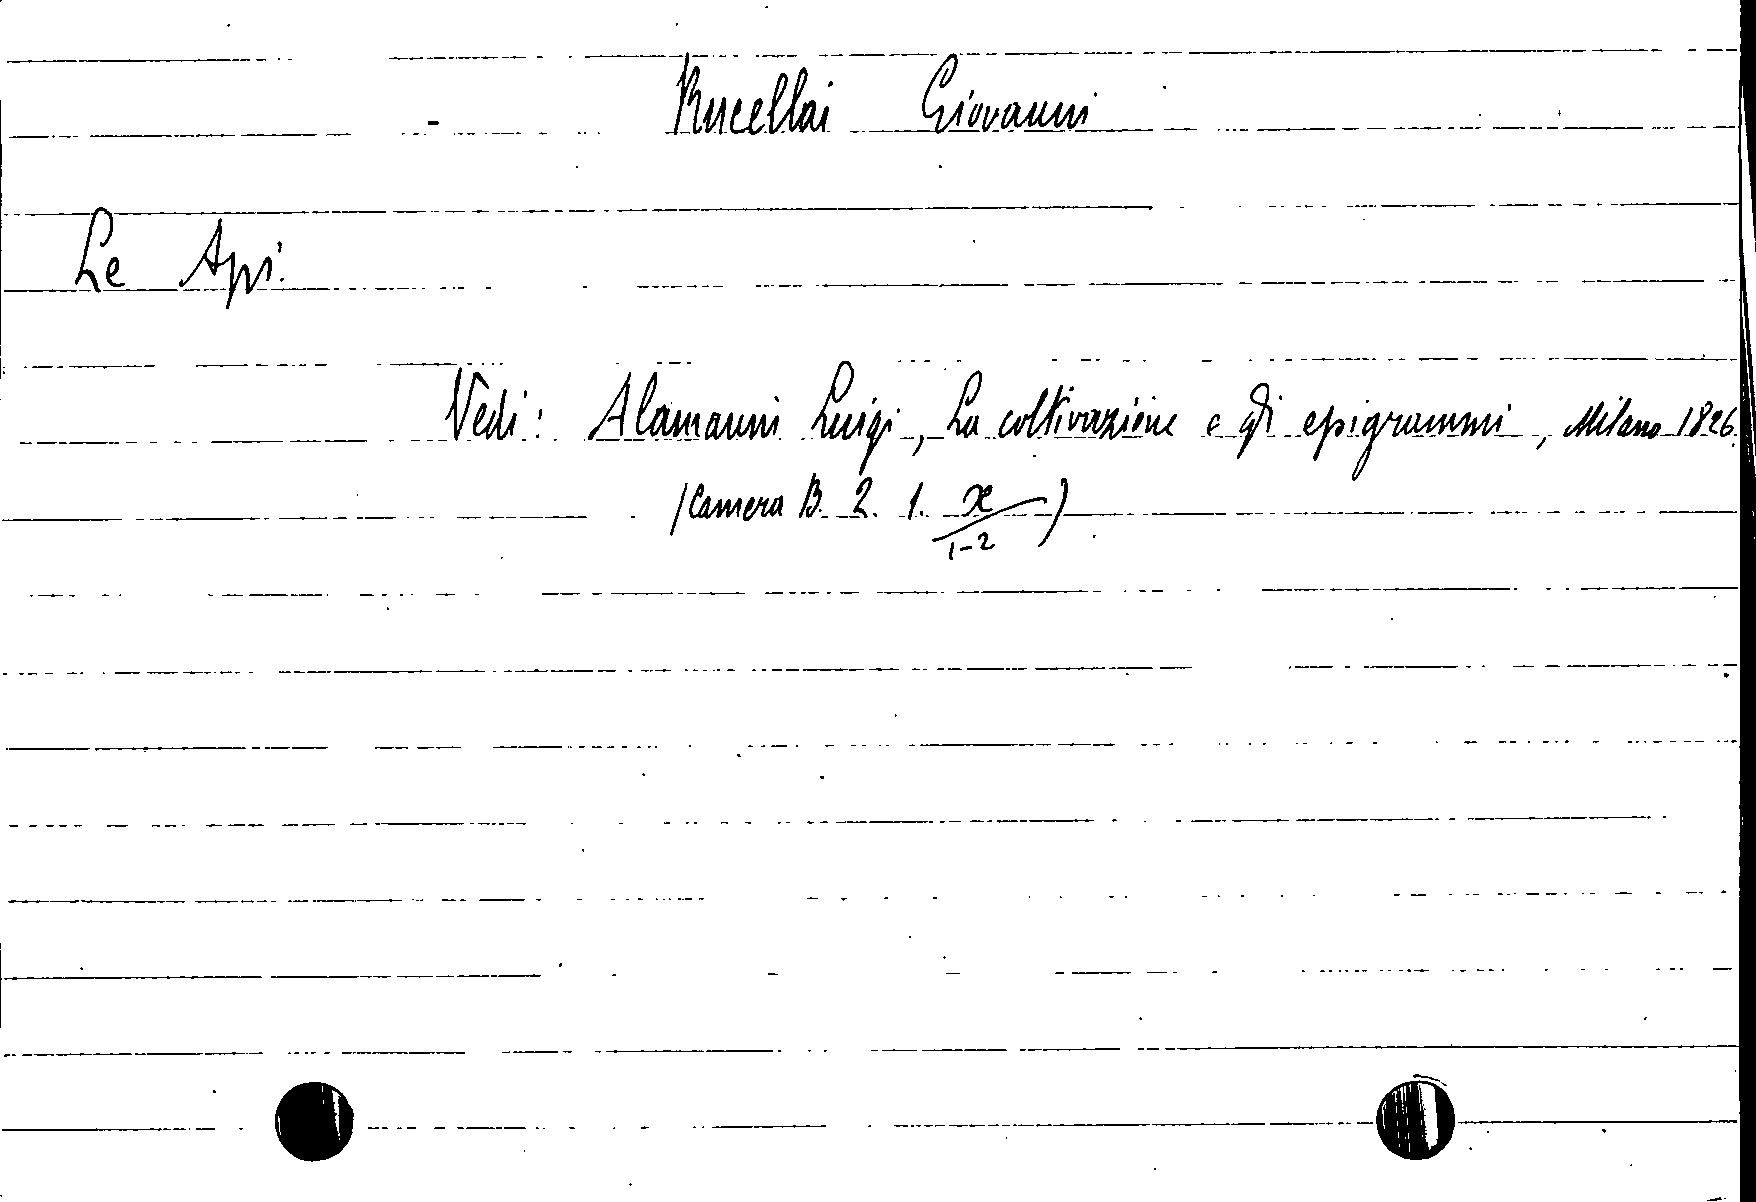 Rucellai Giovanni
Le Api.
Vedi: Alamanni Luigi, La coltivazione e gli epigrammi, Milano 1826.
(Camera B. 2. 1. x/1-2)